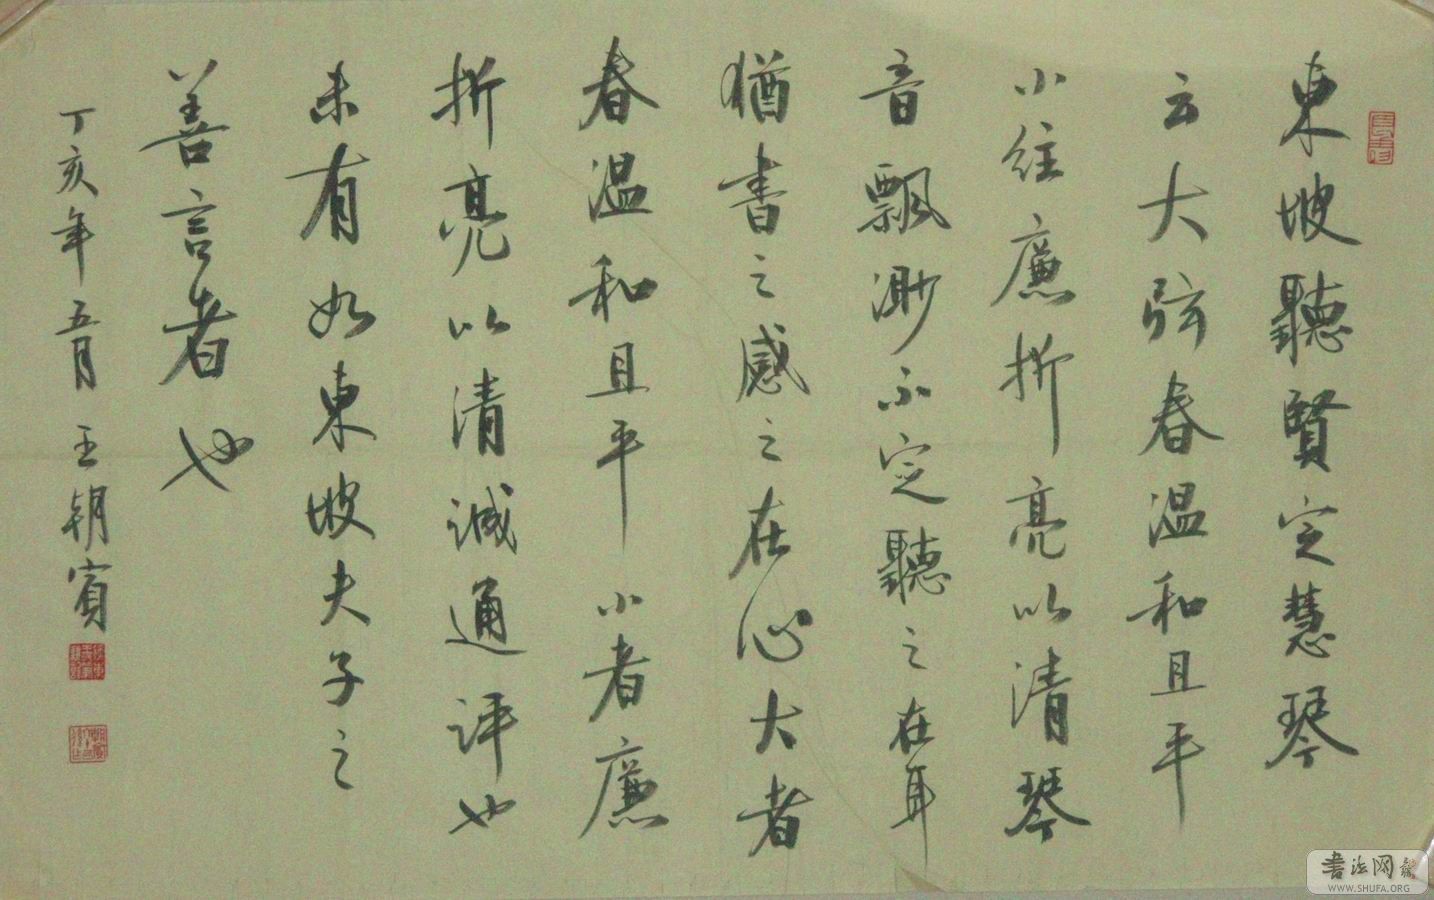 東坡聽賢定慧琴
云大弦春温和且平
小絃廉折亮以清琴
音飄渺不定聽之在耳
猶書之感之在心大者
春温和且平小者廉
折亮以清誠通评也
未有如東坡夫子之
善言者也
丁亥年五月王朝賓
書法网
WWW.SHUFA.ORG